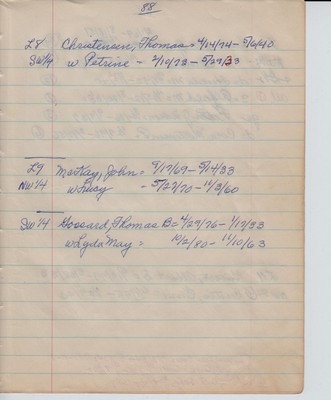 88
L8 Christensen, Thomas = 4/14/74 - 5/6/40
SW 1/4 w Petrine - 2/10/73 - 5/29/33
L9 MacKay, John = 9/17/69 - 5/14/33
NW 1/4 w Lucy - 5/27/70 - 11/3/60
SW 1/4 Gossard, Thomas B = 4/29/76 - 1/17/33
w Lyda May = 10/2/80 - 11/10/63